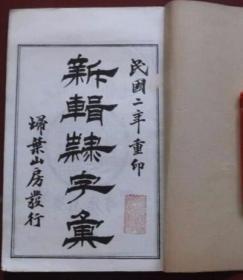 民國二年重印
新輯隸字彙
埽葉山房發行